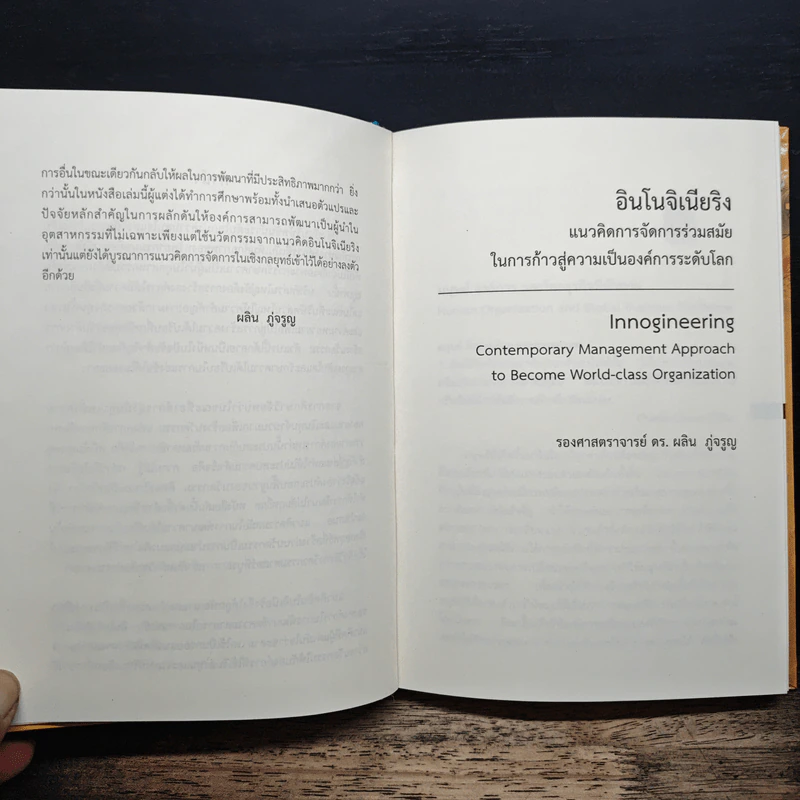 การอื่นในขณะเดียวกันกลับให้ผลในการพัฒนาที่มีประสิทธิภาพมากกว่า ยิ่ง
กว่านั้นในหนังสือเล่มนี้ผู้แต่งได้ทำการศึกษาพร้อมทั้งนำเสนอตัวแปรและ
ปัจจัยหลักสำคัญในการผลักดันให้องค์การสามารถพัฒนาเป็นผู้นำใน
อุตสาหกรรมที่ไม่เฉพาะเพียงแต่ใช้นวัตกรรมจากแนวคิดอินโนจิเนียริง
เท่านั้นแต่ยังได้บูรณาการแนวคิดการจัดการในเชิงกลยุทธ์เข้าไว้ได้อย่างลงตัว
อีกด้วย
ผลิน ภู่จรูญ
อินโนจิเนียริง
แนวคิดการจัดการร่วมสมัย
ในการก้าวสู่ความเป็นองค์การระดับโลก
Innogineering
Contemporary Management Approach
to Become World-class Organization
รองศาสตราจารย์ ดร. ผลิน ภู่จรูญ